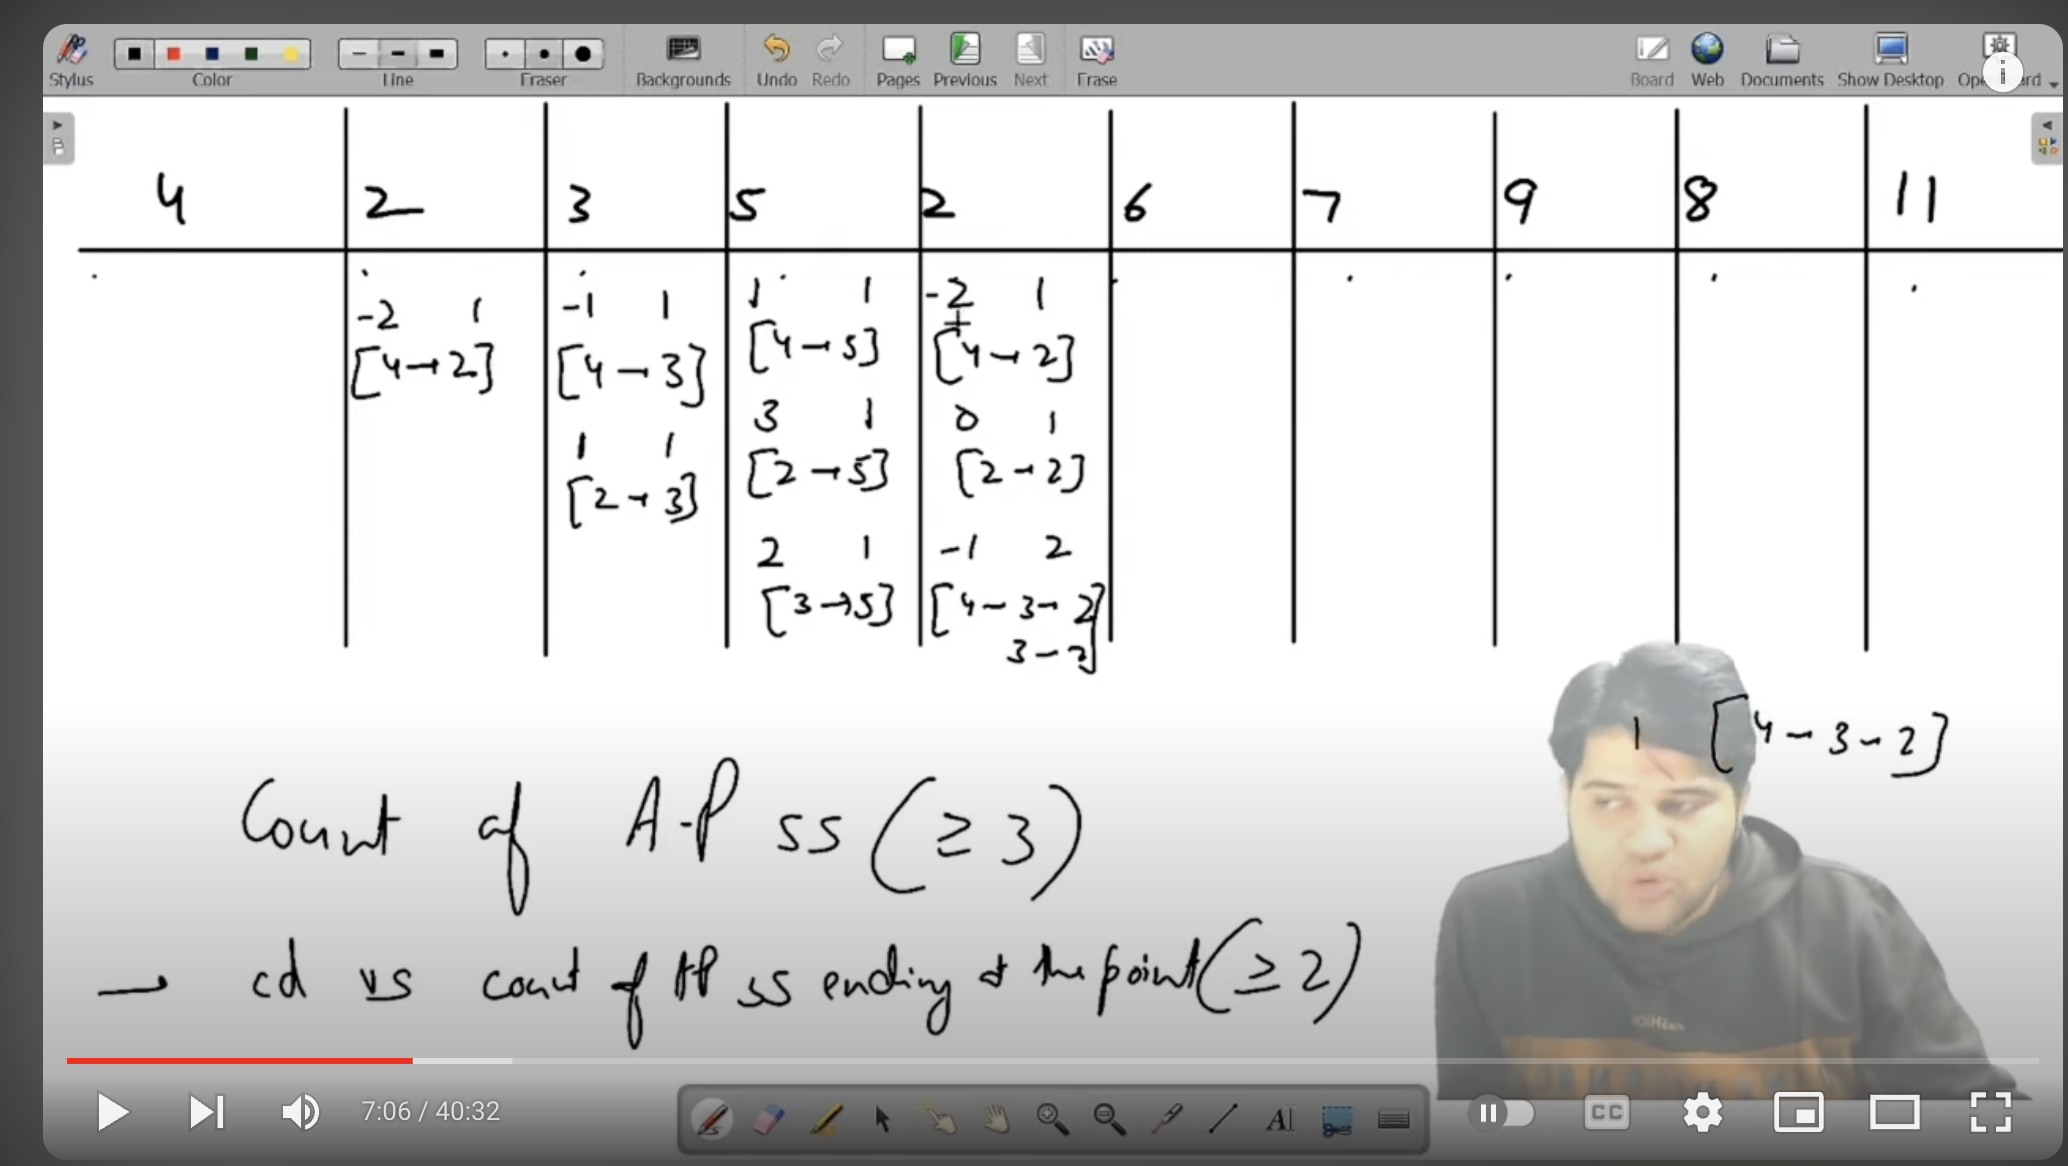 Stylus Color Line Eraser Backgrounds Undo Redo Pages Previous Next Erase Board Web Documents Show Desktop
4 2 3 5 2 6 7 9 8 11
-2 1
[4→2]
-1 1
[4→3]
1 1
[2→3]
1 1
[4→5]
3 1
[2→5]
2 1
[3→5]
-2 1
[4→2]
0 1
[2→2]
-1 2
[4-3-2
3-2]
1 [4-3-2]
Count of A.P ss (≥3)
→ cd vs count of AP ss ending at the point (≥2)
7:06 / 40:32
CC
AI